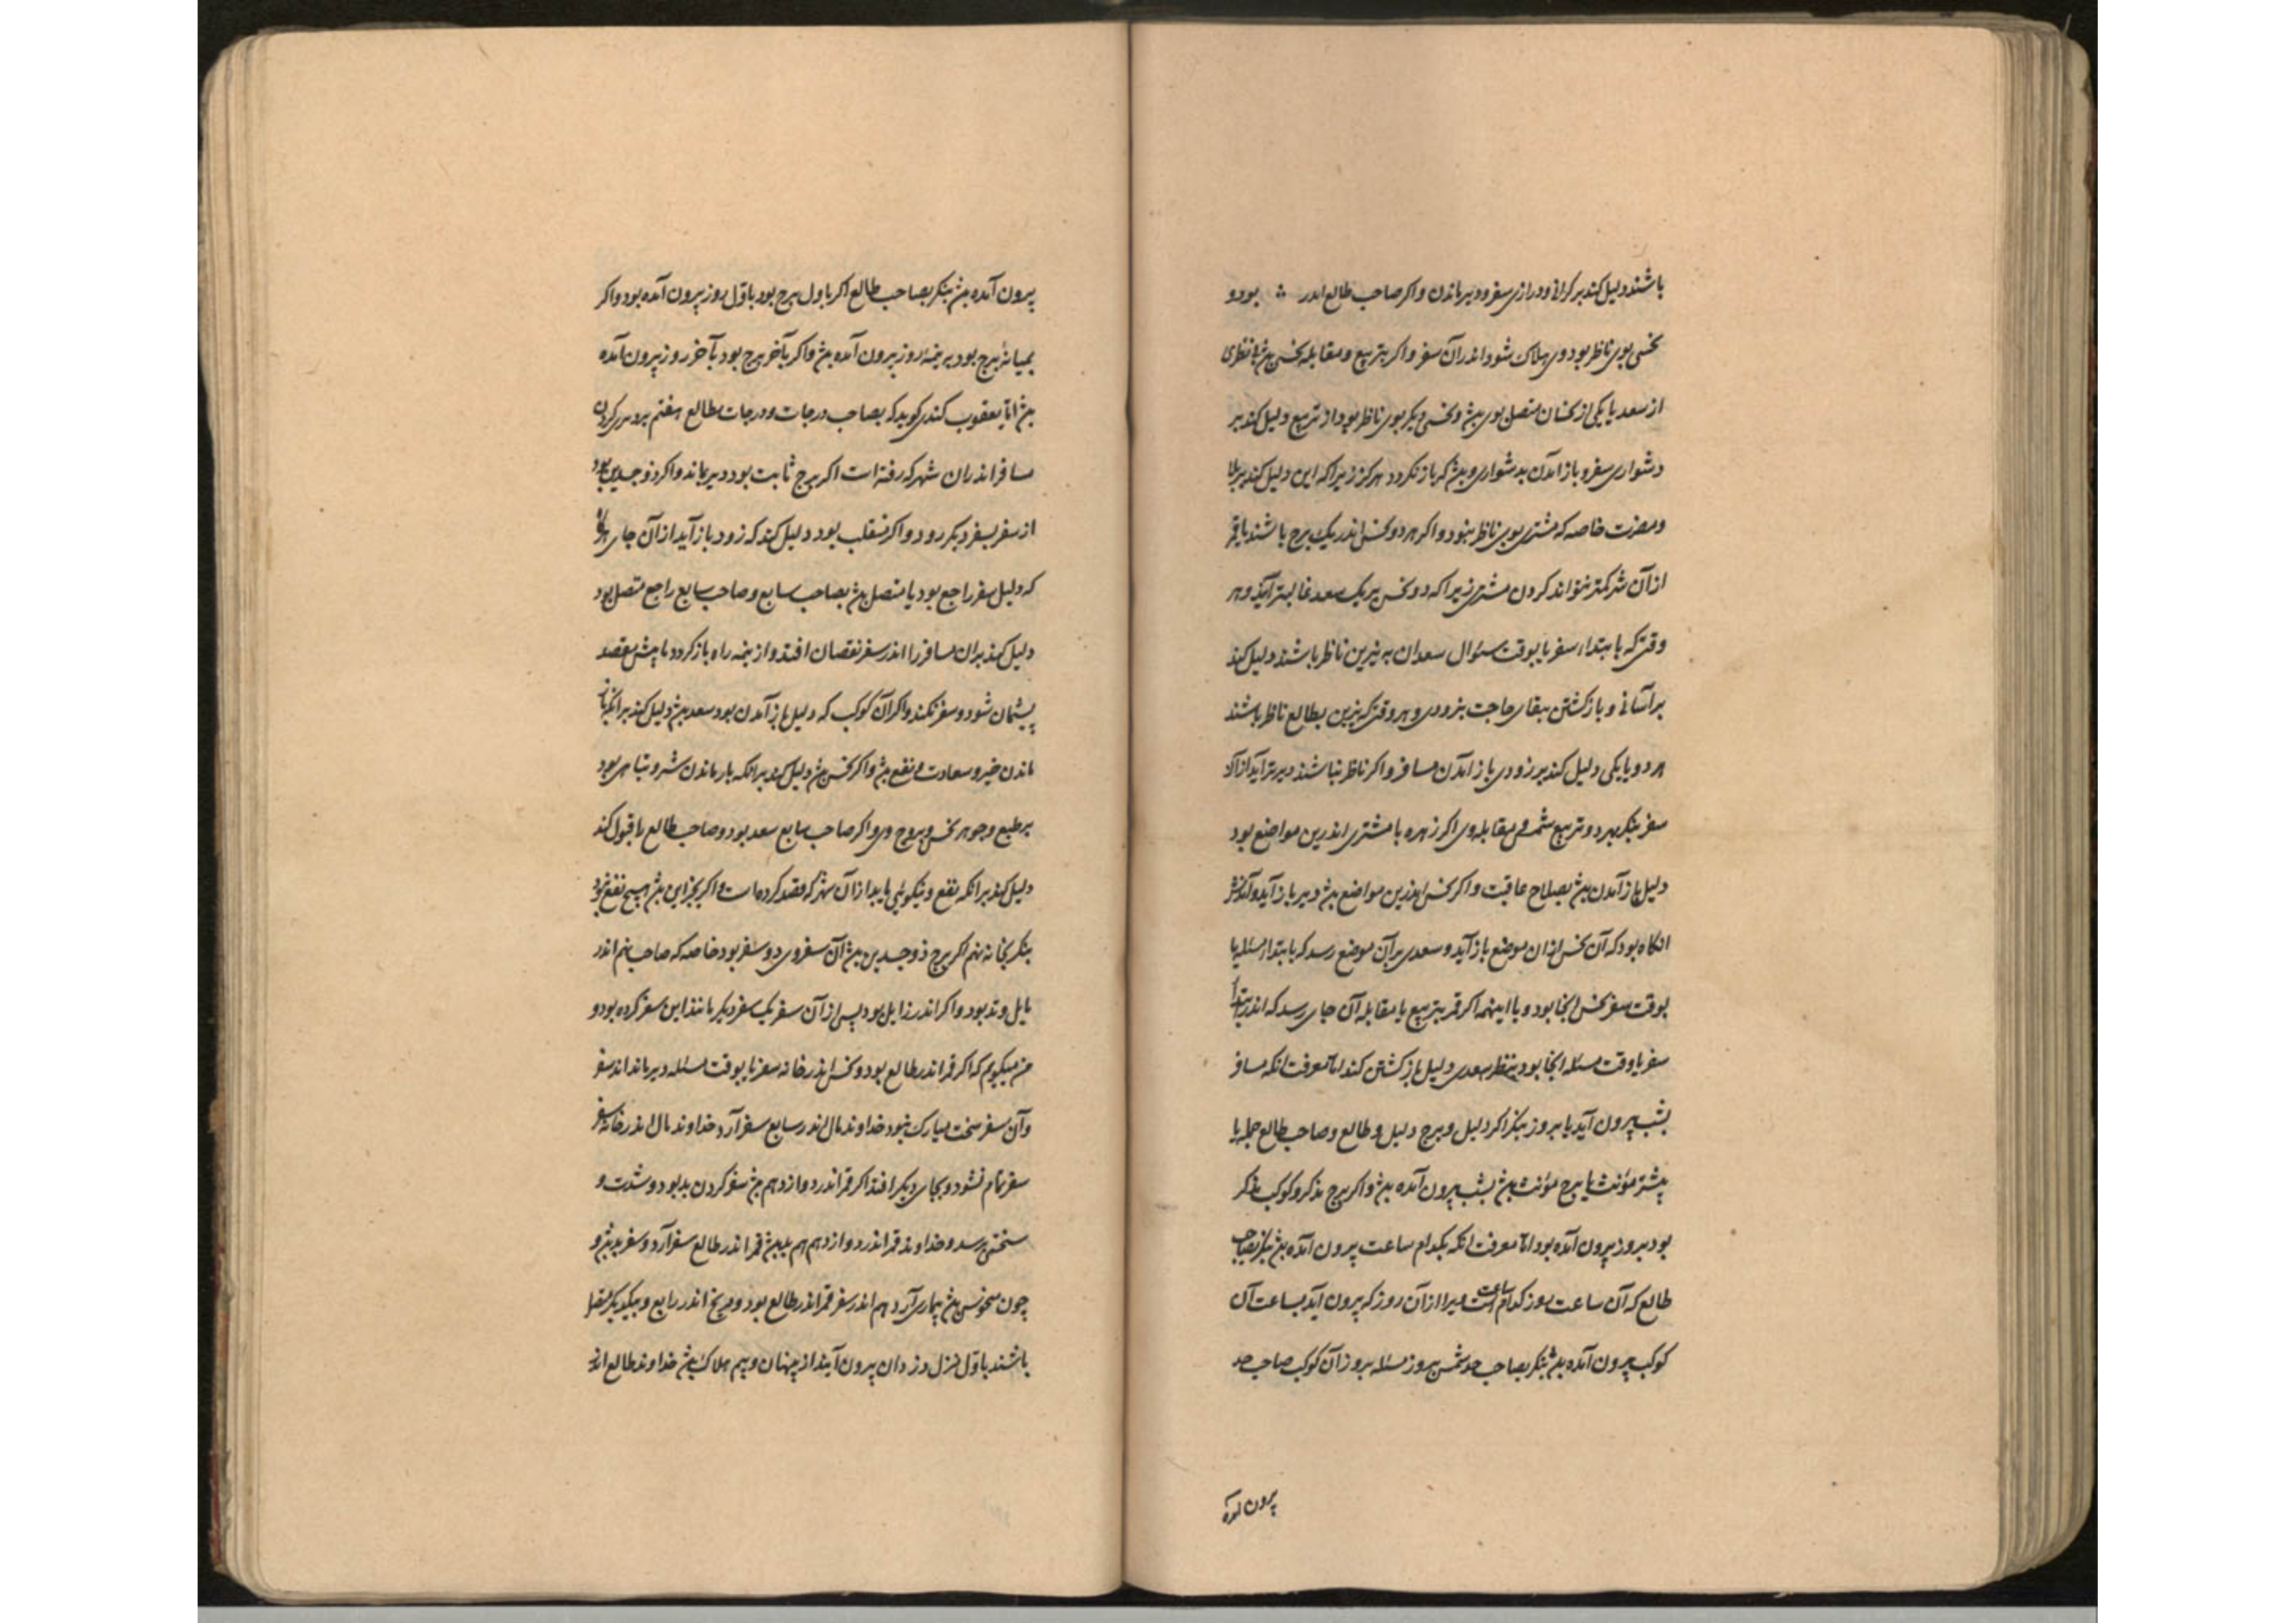 باشند دلیل کند بر کرانی و درازی سفر و دیر ماندن و اکر صاحب طالع اندر ؞ بود و
نحسی بوی ناظر بود وی هلاک شود اندر آن سفر و اکر بتربیع و مقابله نحس باشد بی نظری
از سعد یا یکی از نحسان متصل بوی باشد و نحسی دیکر بوی ناظر بود از تربیع دلیل کند بر
دشواری سفر و باز آمدن بدشواری و باشد که باز نکردد هرکز زیرا که این دلیل کند بر بلا
و مضرت خاصه که مشتری بوی ناظر نبود و اکر هر دو نحس اندر یک برج باشند با قمر
از آن شر کمتر نتواند کردن مشتری زیرا که دو نحس بر یک سعد غالبتر آیند و هر
وقتی که بابتداء سفر یا بوقت سئوال سعدان به نیرین ناظر باشند دلیل کند
بر آسانی و باز کشتن بقضای حاجت بزودی و هر وقتی که نیرین بطالع ناظر باشند
هر دو یا یکی دلیل کند بر زودی باز آمدن مسافر و اکر ناظر نباشند دیرتر آید از آن
سفر بنکر بهر دو تربیع شمس و مقابله وی اکر زهره یا مشتری اندرین مواضع بود
دلیل باز آمدن باشد بصلاح عاقبت و اکر نحس اندرین مواضع باشد دیر باز آید و آمدنش
انکاه بود که آن نحس از ان موضع باز آید و سعدی بر آن موضع رسد که بابتداء مسئله یا
بوقت سفر نحس انجا بود و با اینهمه اکر قمر بتربیع یا مقابله آن جای رسد که اندر ابتداء
سفر یا وقت مسئله انجا بود بنظر سعدی دلیل باز کشتن کند اما معرفت انکه مسافر
بشب بیرون آید یا بروز بنکر اکر دلیل و برج دلیل و طالع و صاحب طالع جمله یا
بیشتر مؤنث یا برج مؤنث باشد بشب بیرون آمده باشد و اکر برج مذکر و کوکب مذکر
بود بروز بیرون آمده بود اما معرفت انکه بکدام ساعت بیرون آمده باشد بنکر بصاحب
طالع که آن ساعت روز کدام ساعت است ویرا از آن روز که بیرون آید بساعت آن
کوکب بیرون آمده باشد بنکر بصاحب حد شمس بروز مسئله بروز آن کوکب صاحب حد
بیرون آمده
بیرون آمده باشد بنکر بصاحب طالع اکر باول برج بود باول روز بیرون آمده بود و اکر
بمیانه برج بود بر نیمه روز بیرون آمده باشد و اکر بآخر برج بود بآخر روز بیرون آمده
باشد اما یعقوب کندی کوید که بصاحب درجات و درجات طالع هفتم
مسافر اندران شهر که رفته است اکر برج ثابت بود دیر بماند و اکر ذو جسدین بود
از سفر بسفر دیکر رود و اکر منقلب بود دلیل کند که زود باز آید از آن جای هرکاه
که دلیل سفر راجع بود یا متصل باشد بصاحب سابع و صاحب سابع راجع متصل بود
دلیل کند بران مسافر را اندر سفر نقصان افتد و از نیمه راه باز کردد یا پیش مقصد
پشیمان شود و سفر نکند و اکر آن کوکب که دلیل باز آمدن بود سعد باشد دلیل کند بر انکه باز
ماندن خیر و سعادت و نفع باشد و اکر نحس باشد دلیل کند بر انکه باز ماندن شر و تباهی بود
بر طبع و جوهر نحس و بروج وی و اکر صاحب سابع سعد بود و صاحب طالع را قبول کند
دلیل کند بر انکه نفع و نیکوئی یابد از آن شهر که قصد کرده است و اکر بجز این باشد هیچ نفع نبود
بنکر بخانه نهم اکر برج ذو جسدین باشد آن سفر وی دو سفر بود خاصه که صاحب نهم اندر
مایل وتد بود و اکر اندر زایل بود پس از آن سفر یک سفر دیکر مانند این سفر کرده بود و
من میکویم که اکر قمر اندر طالع بود و نحس اندر خانه سفر تا بوقت مسئله دیر ماند اندر سفر
و آن سفر سخت مبارک نبود خداوند مال اندر سابع سفر آرد خداوند مال اندر خانه سفر
سفر تمام نشود و بجای دیکر افتد اکر قمر اندر دوازدهم باشد سفر کردن بد بود و شدت و
سختی رسد و خداوند قمر اندر دوازدهم هم بد باشد قمر اندر طالع سفر آرد و سفر بد باشد و
چون منحوس باشد بیماری آرد هم اندر سفر قمر اندر طالع بود و مریخ اندر رابع و بیکدیکر متصل
باشند باول منزل دزدان بیرون آیند از پنهان و بیم هلاک باشد خداوند طالع اندر